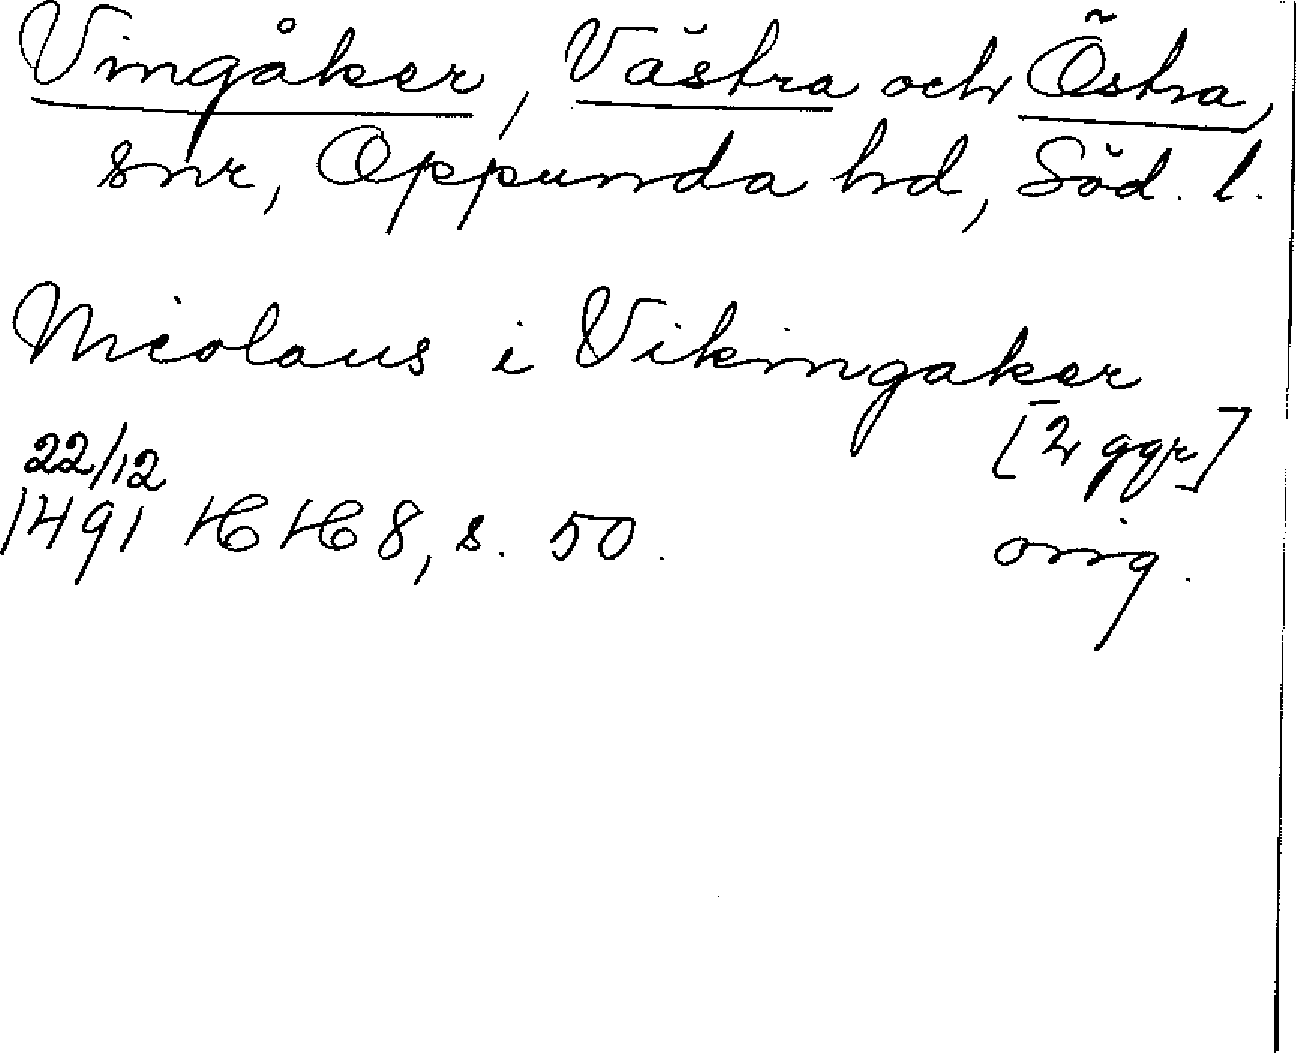 Vingåker, Västra och Östra,
snr, Oppunda hd, Söd. l.
Nicolaus i Vikingaker
[2 ggr]
22/12
1491 HH 8, s. 50.
orig.